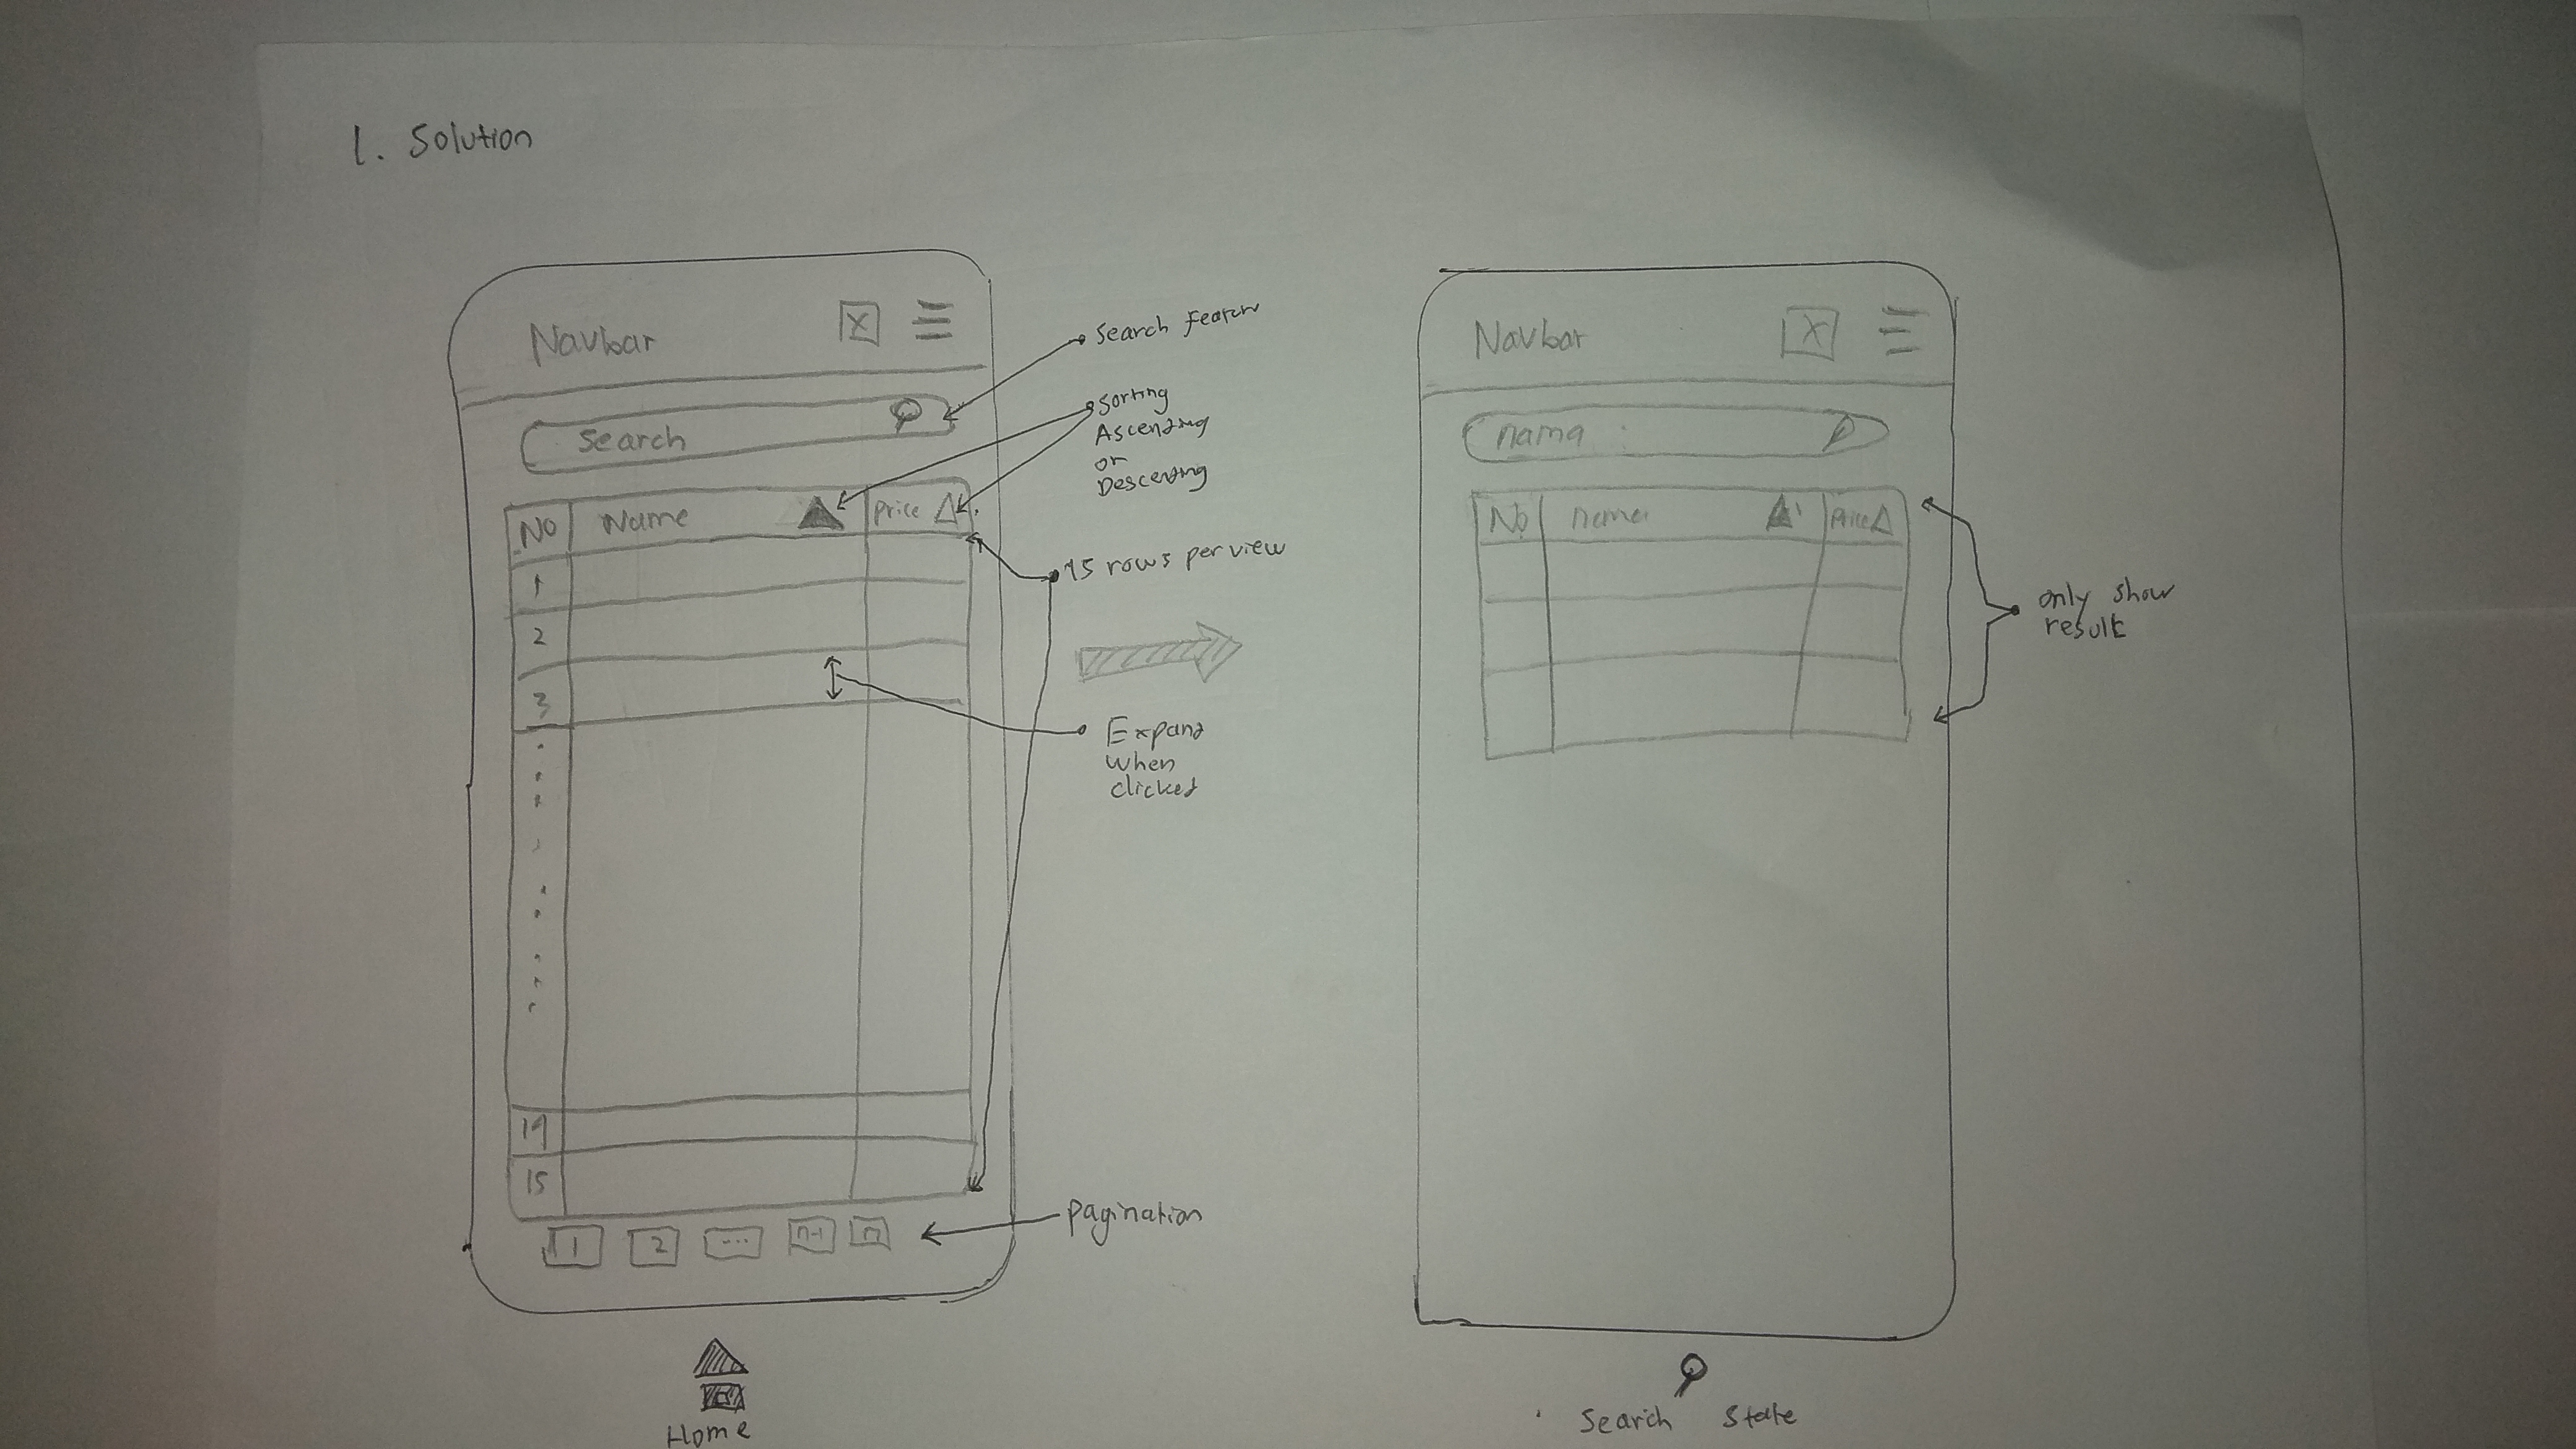 1. Solution
Navbar X
Search
No Name Price
1
2
3
14
15
1 2 ... n-1 n
Home
Search Feature
Sorting
Ascending
or
Descending
15 rows per view
Expand
when
clicked
pagination
Navbar X
nama :
No nama Price
only show
result
Search State